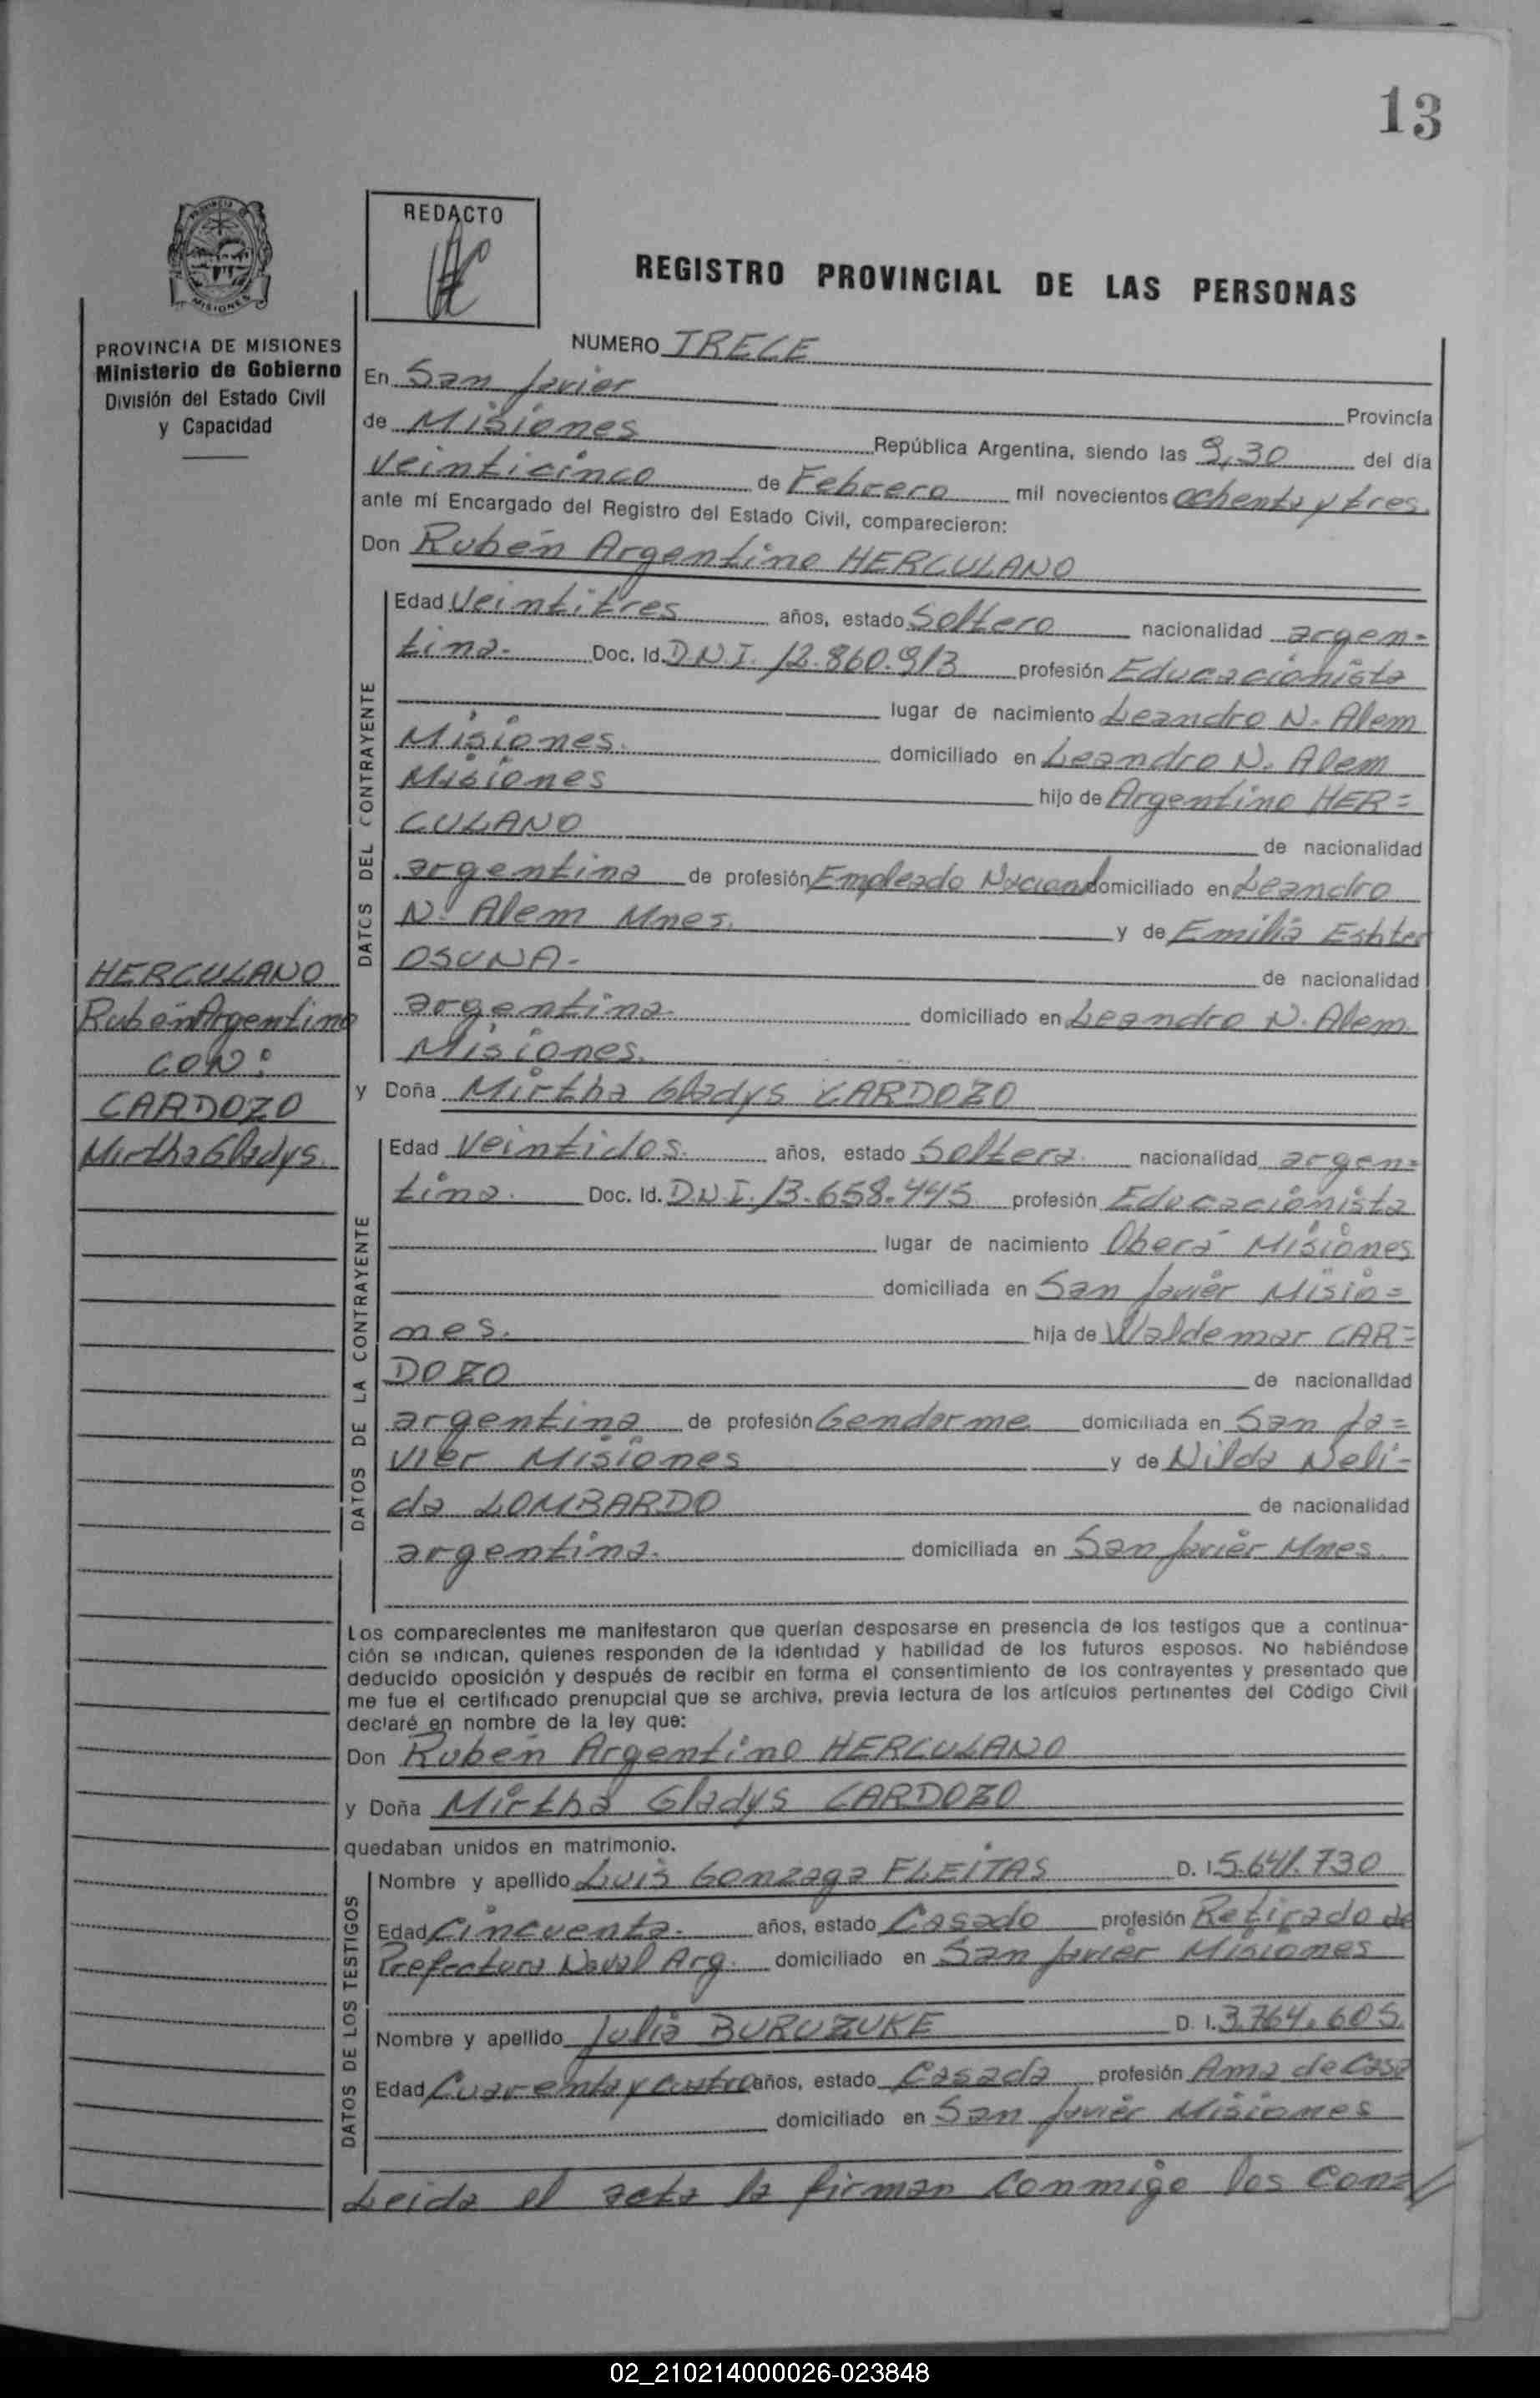 13
REDACTO
REGISTRO PROVINCIAL DE LAS PERSONAS
PROVINCIA DE MISIONES
Ministerio de Gobierno
División del Estado Civil
y Capacidad
HERCULANO
Rubén Argentino
CON:
CARDOZO
Mirtha Gladys.
NUMERO TRECE
En San Javier Provincia
de Misiones República Argentina, siendo las 9,30 del día
veinticinco de Febrero mil novecientos ochenta y tres.
ante mí Encargado del Registro del Estado Civil, comparecieron:
Don Rubén Argentino HERCULANO
DATOS DEL CONTRAYENTE
Edad veintitres años, estado Soltero nacionalidad argen=
tina. Doc. Id. D.N.I. 12.860.913 profesión Educacionista
lugar de nacimiento Leandro N. Alem
Misiones. domiciliado en Leandro N. Alem
Misiones hijo de Argentino HER=
CULANO de nacionalidad
argentina de profesión Empleado Nacional domiciliado en Leandro
N. Alem Mnes. y de Emilia Eshter
OSUNA.- de nacionalidad
argentina. domiciliado en Leandro N. Alem.
Misiones.
y Doña Mirtha Gladys CARDOZO
DATOS DE LA CONTRAYENTE
Edad veintidos. años, estado Soltera. nacionalidad argen=
tina. Doc. Id. D.N.I. 13.658.445 profesión Educacionista
lugar de nacimiento Oberá Misiones
domiciliada en San Javier Misio=
nes. hija de Waldemar CAR=
DOZO de nacionalidad
argentina de profesión Gendarme domiciliada en San Ja=
vier Misiones y de Nilda Neli-
da LOMBARDO de nacionalidad
argentina. domiciliada en San Javier Mnes.
Los comparecientes me manifestaron que querían desposarse en presencia de los testigos que a continua-
ción se indican, quienes responden de la identidad y habilidad de los futuros esposos. No habiéndose
deducido oposición y después de recibir en forma el consentimiento de los contrayentes y presentado que
me fue el certificado prenupcial que se archiva, previa lectura de los artículos pertinentes del Código Civil
declaré en nombre de la ley que:
Don Rubén Argentino HERCULANO
y Doña Mirtha Gladys CARDOZO
quedaban unidos en matrimonio.
DATOS DE LOS TESTIGOS
Nombre y apellido Luis Gonzaga FLEITAS D. I. 5.641.730
Edad Cincuenta. años, estado Casado profesión Retirado de
Prefectura Naval Arg. domiciliado en San Javier Misiones
Nombre y apellido Julia BURUZUKE D. I. 3.764.605.
Edad Cuarenta y cuatro años, estado Casada profesión Ama de Casa
domiciliado en San Javier Misiones
Leida el acta la firman conmigo los con=
02_210214000026-023848